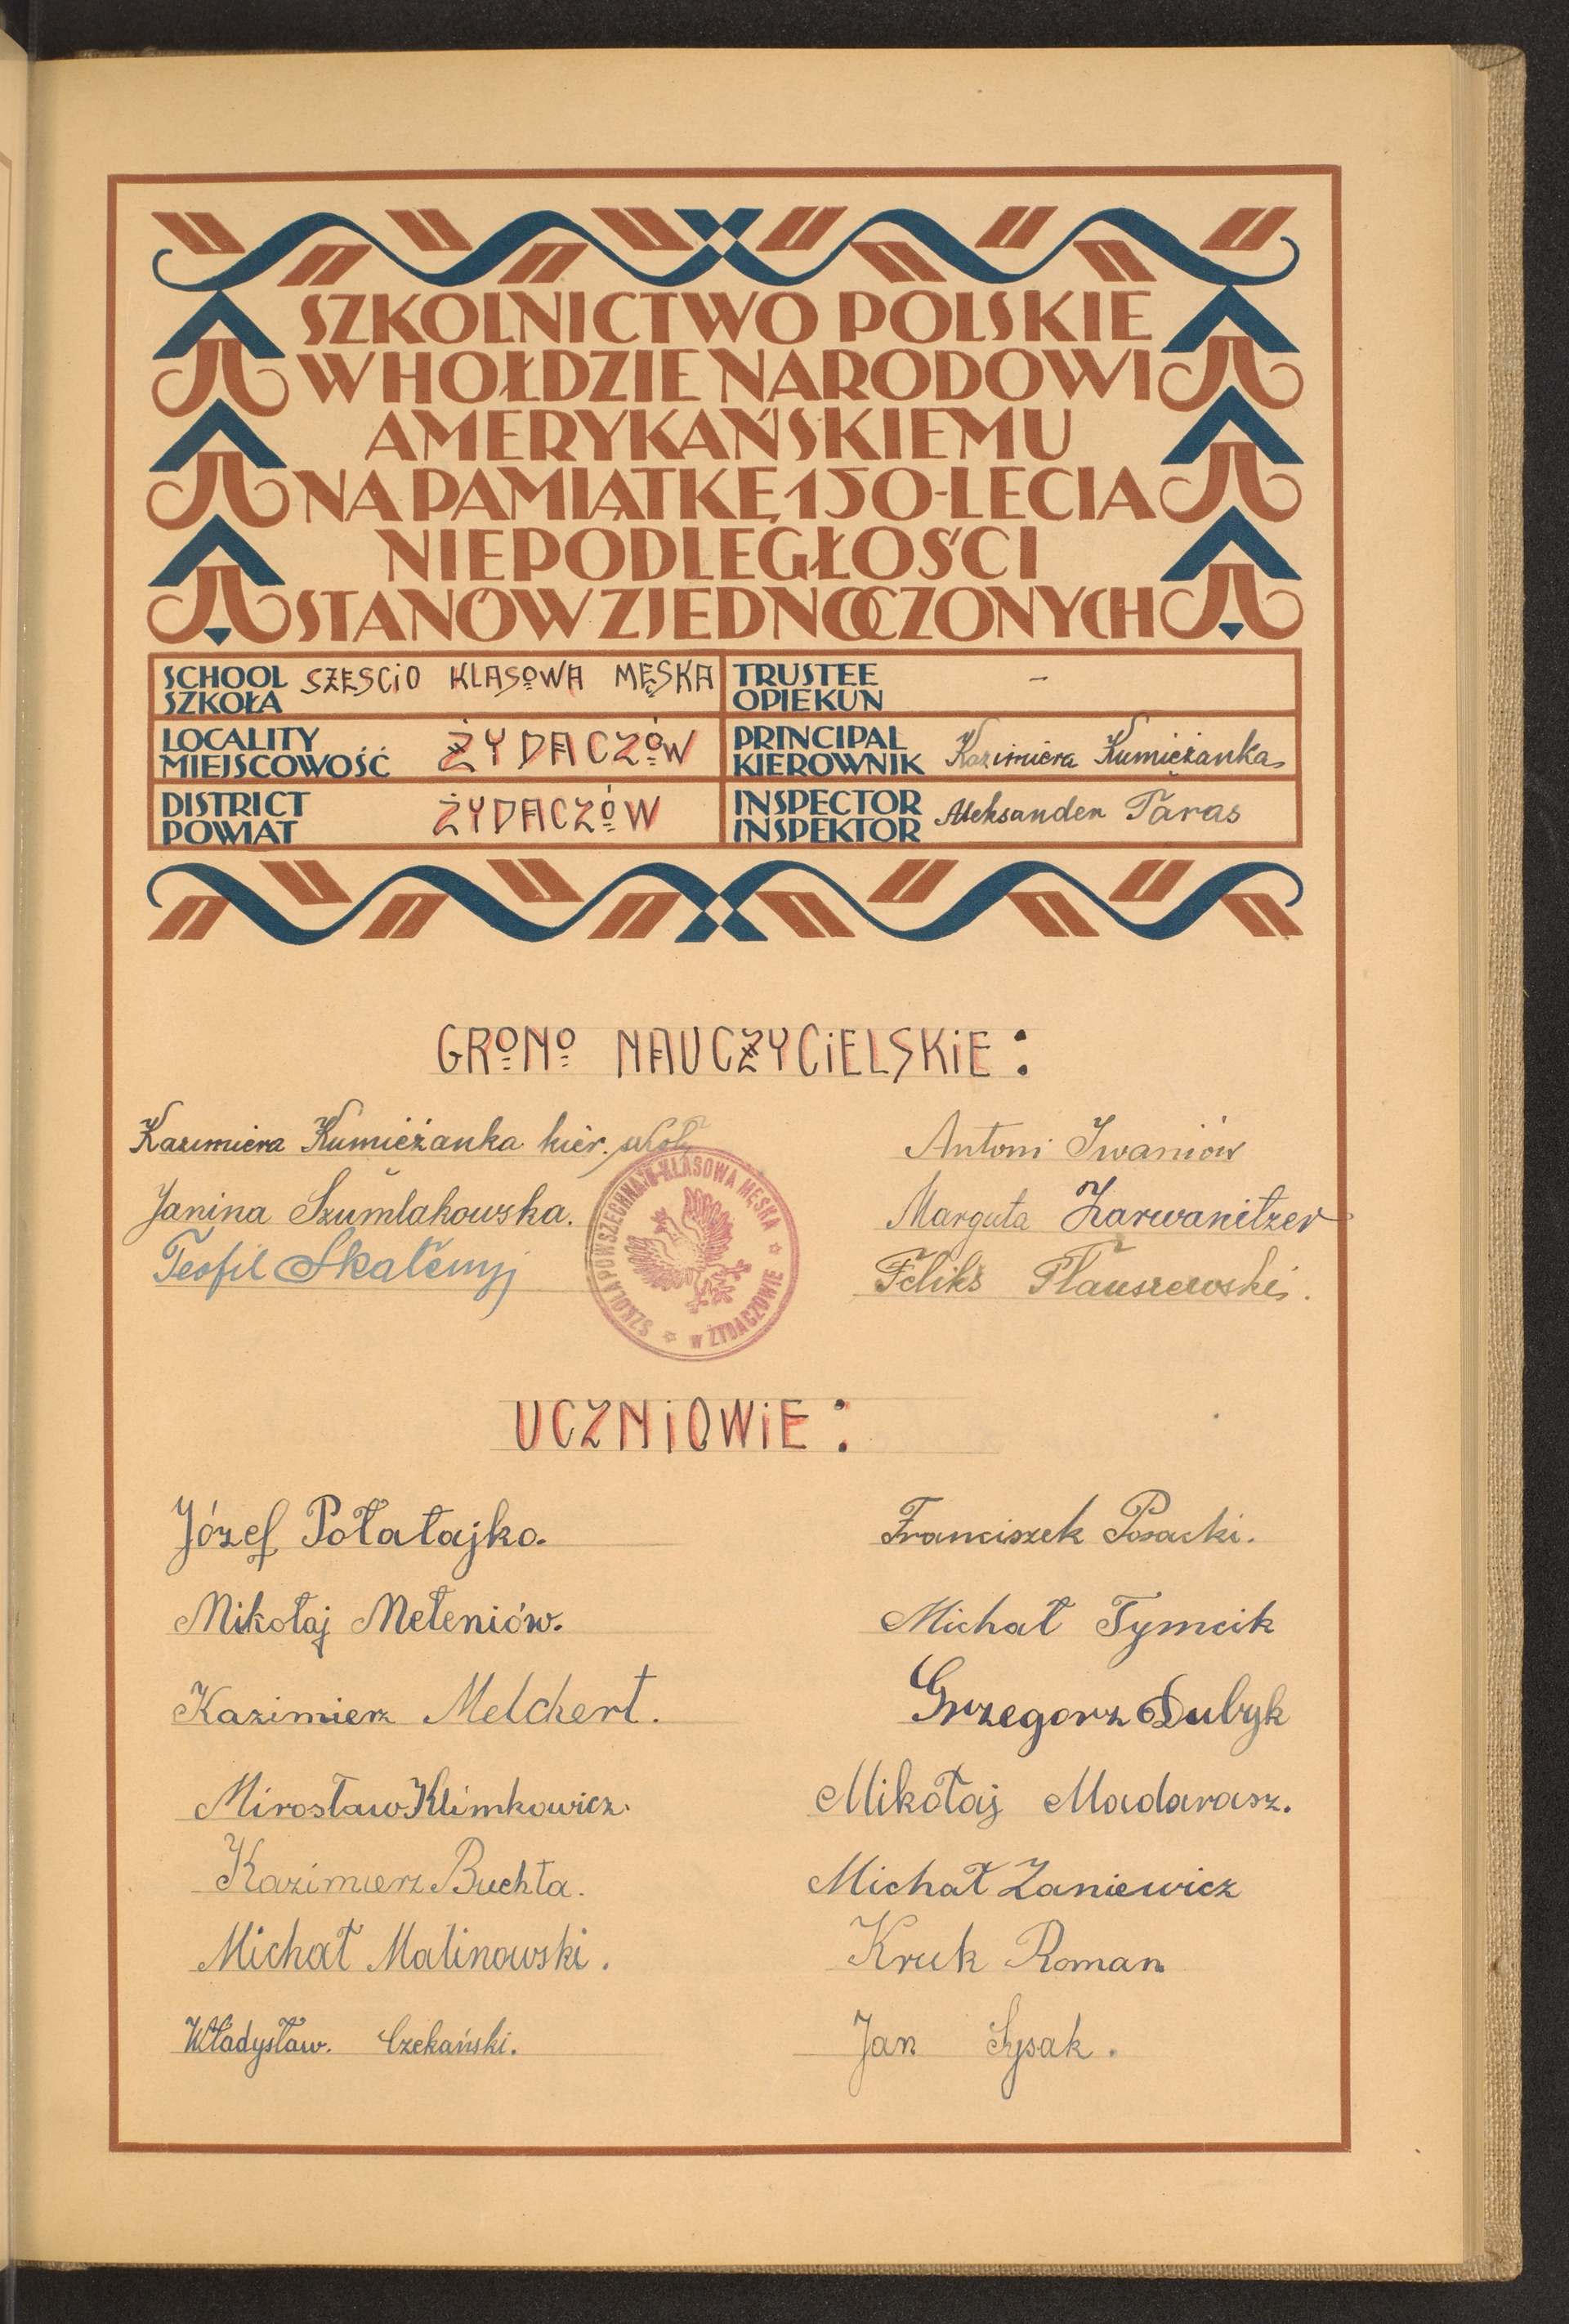 SZKOLNICTWO POLSKIE
W HOŁDZIE NARODOWI
AMERYKAŃSKIEMU
NA PAMIĄTKĘ 150-LECIA
NIEPODLEGŁOŚCI
STANÓW ZJEDNOCZONYCH
SCHOOL SZEŚCIO KLASOWA MĘSKA
SZKOŁA
TRUSTEE –
OPIEKUN
LOCALITY ŻYDACZÓW
MIEJSCOWOŚĆ
PRINCIPAL Kazimiera Kumiężanka
KIEROWNIK
DISTRICT ŻYDACZÓW
POWIAT
INSPECTOR Aleksander Taras
INSPEKTOR
GRONO NAUCZYCIELSKIE:
Kazimiera Kumiéżanka kier. szkoły
Janina Szumlakowska.
Teofil
SZKOŁA POWSZECHNA 6-KLASOWA MĘSKA
W ŻYDACZOWIE
Antoni Iwaniów
Zarwanitzer
Feliks
UCZNIOWIE:
Józef Połatajko.
Mikołaj Meteniów.
Kazimierz Melchert.
Mirosław Klimkowicz.
Kazimierz Buchta.
Michał Malinowski.
Władysław. Czekański.
Franciszek Posacki.
Michał Tymcik
Grzegorz Dubyk
Mikołaj Madarasz.
Michał Zaniewicz
Kruk Roman
Jan Sysak.